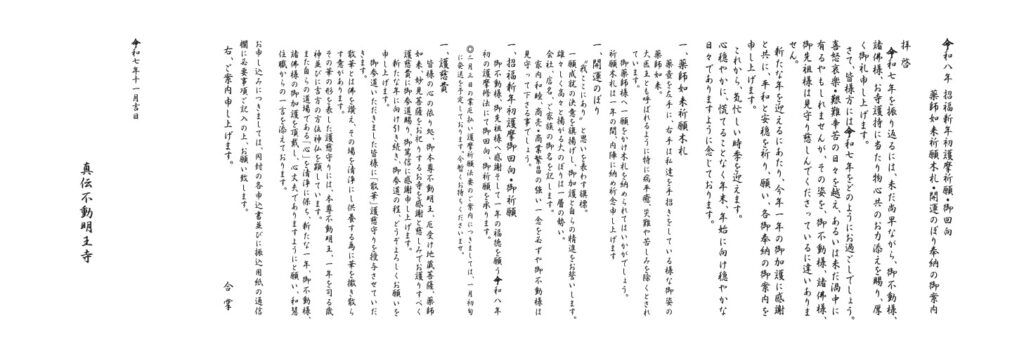 令和八年　招福新年初護摩祈願・御回向
薬師如来祈願木札・開運のぼり奉納の御案内
拝啓
令和七年を振り返るには、未だ尚早ながら、御不動様、
諸佛様、お寺護持に当たり物心共のお力添えを賜り、厚
く御礼申し上げます。
さて、皆様方には令和七年をどのようにお過ごしでしょう。
喜怒哀楽・難難辛苦の日々を越え、あるいは未だ渦中に
有るやもしれませんが、その姿を、御不動様、諸佛様、
御先祖様は見守り慈しんでくださっているに違いありま
せん。
新たな年を迎えるにあたり、今年一年の御加護に感謝
と共に、平和と安穏を祈り、願い、各御奉納の御案内を
申し上げます。
これから、気忙しい時季を迎えます。
心穏やかに、慌てることなく年末、年始に向け穏やかな
日々でありますように念じております。
一、薬師如来祈願木札
薬壺を左手に、右手は私達を手招きをしている様な御姿の
薬師如来。
大医王とも呼ばれるように特に病平癒、災難や苦しみを除くとされ
御薬師様へ一願をかけ木札を納められてはいかがでしょう。
祈願木札は一年の間、内陣に納め祈念申し上げます
一、開運のぼり
〝我ここにあり〟と思いを表わす旗標。
一願成就の決意を〝旗揚げ〟し、御加護と自らの精進をお誓いします。
雄々しく高々と揚がる大のぼりは一層の勢い。
会社、店名、ご家族の御名を記します。
家内和睦、商売・商業繁昌の強い一念を必ずや御不動様は
見守って下さる事でしょう。
一、招福新年初護摩御回向・御祈願
御不動様、御先祖様へ感謝そして一年の福徳を願う令和八年
初の護摩修法にて御回向、御祈願を承ります。
◎二月三日の星厄払い護摩祈願法要のご案内につきましては、一月初旬
に発送を予定しております。今暫くお待ちくださいませ。
一、護慈費
皆様の心の依り処、御本尊不動明王、厄受け地蔵菩薩、薬師
如来、妙見菩薩をお祀りするお寺を感謝と慈しみでお護りすべく
護慈費に御報謝賜り、御篤信に感謝申し上げます。
新たな年に向け引き続き、御参道の程、どうぞよろしくお願いを
申し上げます。
御参道いただきました皆様に「散華」護慈守りを授与させていた
だきます。
散華とは佛を讃え、その場を清浄にし供養する為に華を撒き散ら
す意があります。
その華の形を表した護慈守りは、本尊不動明王、一年を司る歳
神並びに吉方の方位神仏を顕しています。
また自らの道場である「心」を清浄に保ち、新たな一年、御不動様、
諸佛様の御加護を頂戴し、心丈夫でありますようにと願い、和慧
住職からの一言を添えております。
お申し込みにつきましては、同封の各申込書並びに振込用紙の通信
欄に必要事項ご記入の上、お願い致します。
右、ご案内申し上げます。
合掌
令和七年十一月吉日
真伝不動明王寺